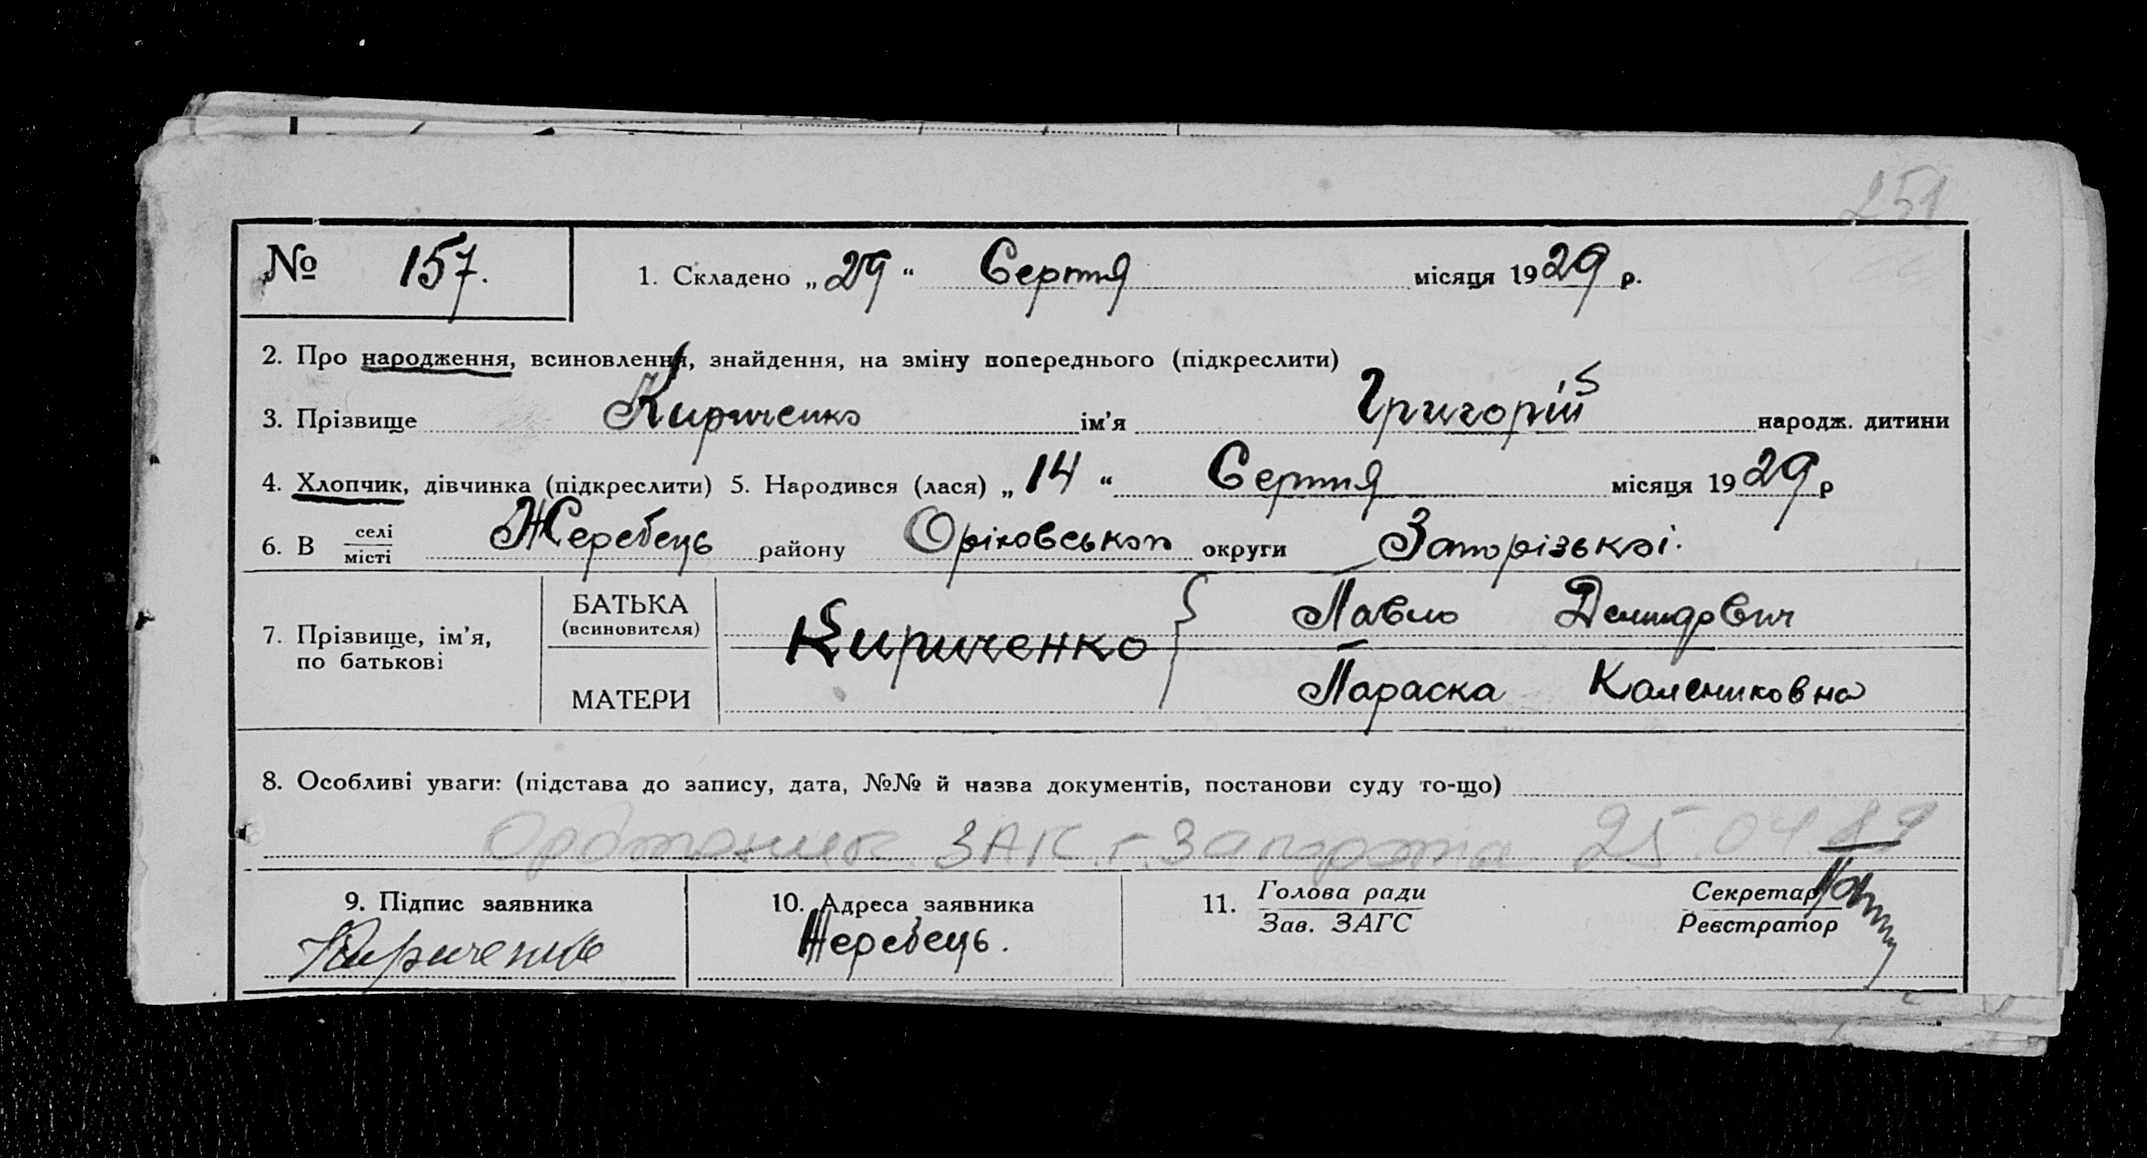 251
№ 157. 1. Складено „29“ Серпня місяця 1929 р.
2. Про народження, всиновлення, знайдення, на зміну попереднього (підкреслити)
3. Прізвище Кириченко ім'я Григорій народж. дитини
4. Хлопчик, дівчинка (підкреслити) 5. Народився (лася) „14“ Серпня місяця 1929 р
6. В селі місті Жеребець району Оріховськоп округи Запорізької.
7. Прізвище, ім'я, по батькові
БАТЬКА (всиновителя) Кириченко Павло Демидович
МАТЕРИ Параска Калениковна
8. Особливі уваги: (підстава до запису, дата, №№ й назва документів, постанови суду то-що)
ЗАК. г. Запорожья 25.04.89
9. Підпис заявника 10. Адреса заявника 11. Голова ради Секретар
Зав. ЗАГС Реєстратор
Кириченко Жеребець.